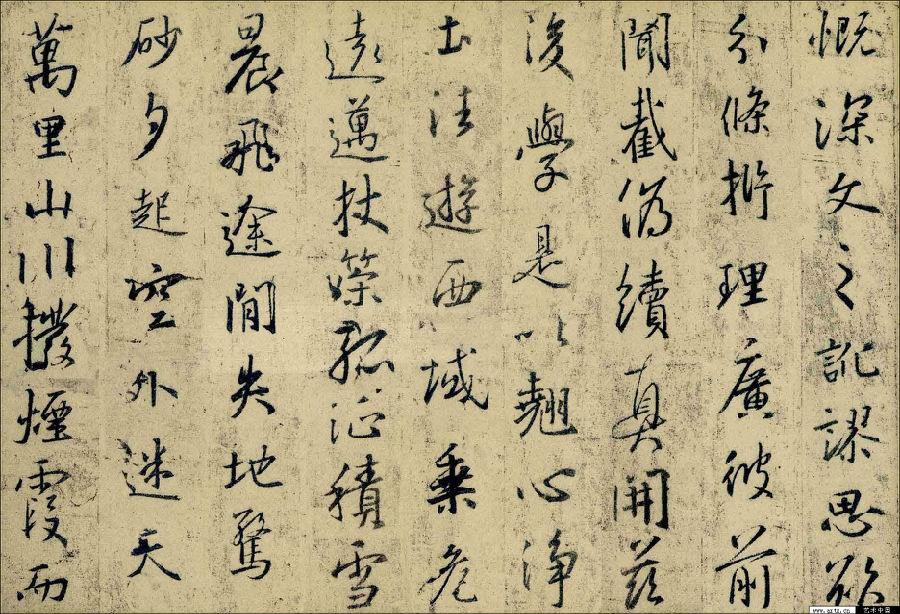 慨深文之訛謬思欲
分條析理廣彼前
聞截偽續真開茲
後學是以翹心淨
土往遊西域乘危
遠邁杖策孤征積雪
晨飛途間失地驚
砂夕起空外迷天
萬里山川撥煙霞而
www.artx.cn 艺术中国